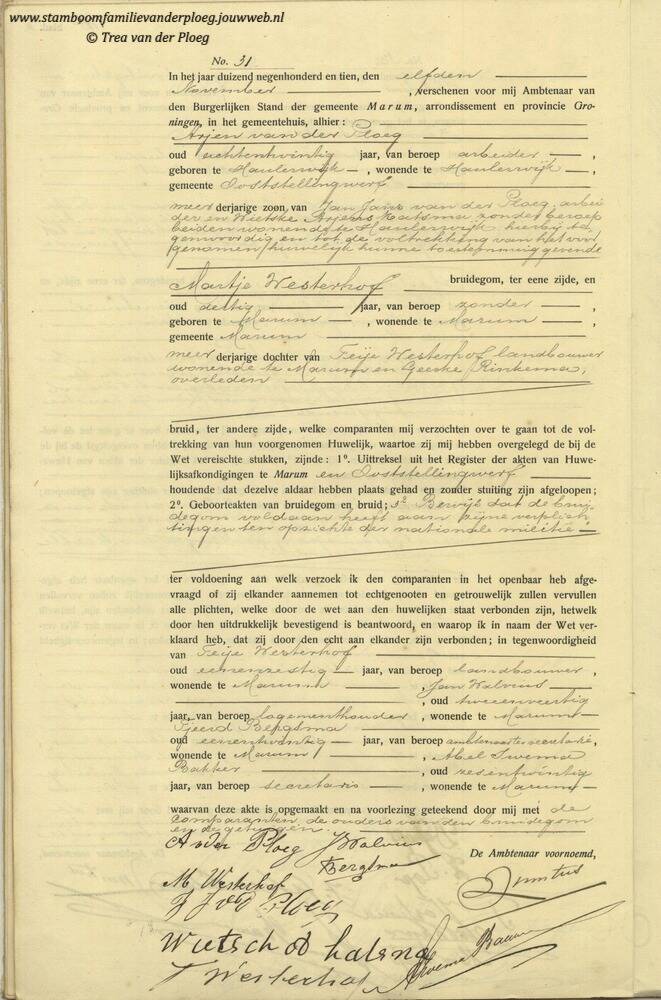 www.stamboomfamilievanderploeg.jouwweb.nl
© Trea van der Ploeg
No. 31
In het jaar duizend negenhonderd en tien, den elfden
November, verschenen voor mij Ambtenaar van
den Burgerlijken Stand der gemeente Marum, arrondissement en provincie Gro-
ningen, in het gemeentehuis, alhier:
Arjen van der Ploeg
oud achtentwintig jaar, van beroep arbeider,
geboren te Haulerwijk, wonende te Haulerwijk,
gemeente Ooststellingwerf
meerderjarige zoon van Jan Jans van der Ploeg, arbei
der en Wietske Arjens Hatsma, zonder beroep
beiden wonende te Haulerwijk, hierbij te
genwoordig en tot de voltrekking van het voor
genomen huwelijk hunne toestemming gevende
bruidegom, ter eene zijde, en
Martje Westerhof
oud dertig jaar, van beroep zonder,
geboren te Marum, wonende te Marum,
gemeente Marum
meerderjarige dochter van Feije Westerhof landbouwer
wonende te Marum en Geeske Rinkema,
overleden
bruid, ter andere zijde, welke comparanten mij verzochten over te gaan tot de vol-
trekking van hun voorgenomen Huwelijk, waartoe zij mij hebben overgelegd de bij de
Wet vereischte stukken, zijnde: 1°. Uittreksel uit het Register der akten van Huwe-
lijksafkondigingen te Marum en Ooststellingwerf
houdende dat dezelve aldaar hebben plaats gehad en zonder stuiting zijn afgeloopen;
2°. Geboorteakten van bruidegom en bruid; 3° Bewijs dat de brui-
degom voldaan heeft aan zijne verplich
tingen ten opzichte der nationale militie
ter voldoening aan welk verzoek ik den comparanten in het openbaar heb afge-
vraagd of zij elkander aannemen tot echtgenooten en getrouwelijk zullen vervullen
alle plichten, welke door de wet aan den huwelijken staat verbonden zijn, hetwelk
door hen uitdrukkelijk bevestigend is beantwoord, en waarop ik in naam der Wet ver-
klaard heb, dat zij door den echt aan elkander zijn verbonden; in tegenwoordigheid
van Feije Westerhof
oud eenenzestig jaar, van beroep landbouwer,
wonende te Marum, Jan Walvius
, oud tweeenveertig
jaar, van beroep logementhouder, wonende te Marum
Tjeerd Bergsma
oud eenentwintig jaar, van beroep ambtenaar ter secretarie,
wonende te Marum, Abel Iwema
Bakker, oud zesentwintig
jaar, van beroep secretaris, wonende te Marum
waarvan deze akte is opgemaakt en na voorlezing geteekend door mij met de
comparanten, de ouders van den bruidegom
en de getuigen.
A v der Ploeg J Walvius
Bergsma
De Ambtenaar voornoemd,
M. Westerhof
J J v d Ploeg
F Westerhof